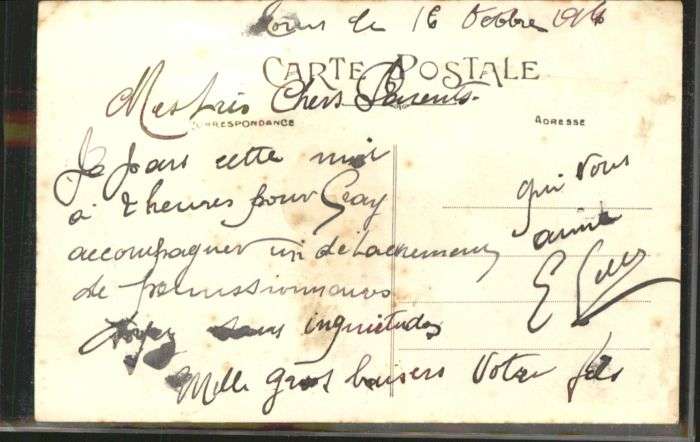 de 16 Octobre 1916
CARTE POSTALE
Mes très Chers Parents.
CORRESPONDANCE
ADRESSE
Je pars cette nuit
à 2 heures pour Gray
accompagner un détachement
de permissionnaires
Soyez sans inquiétudes
Mille gros baisers Votre fils
qui vous
aime
E